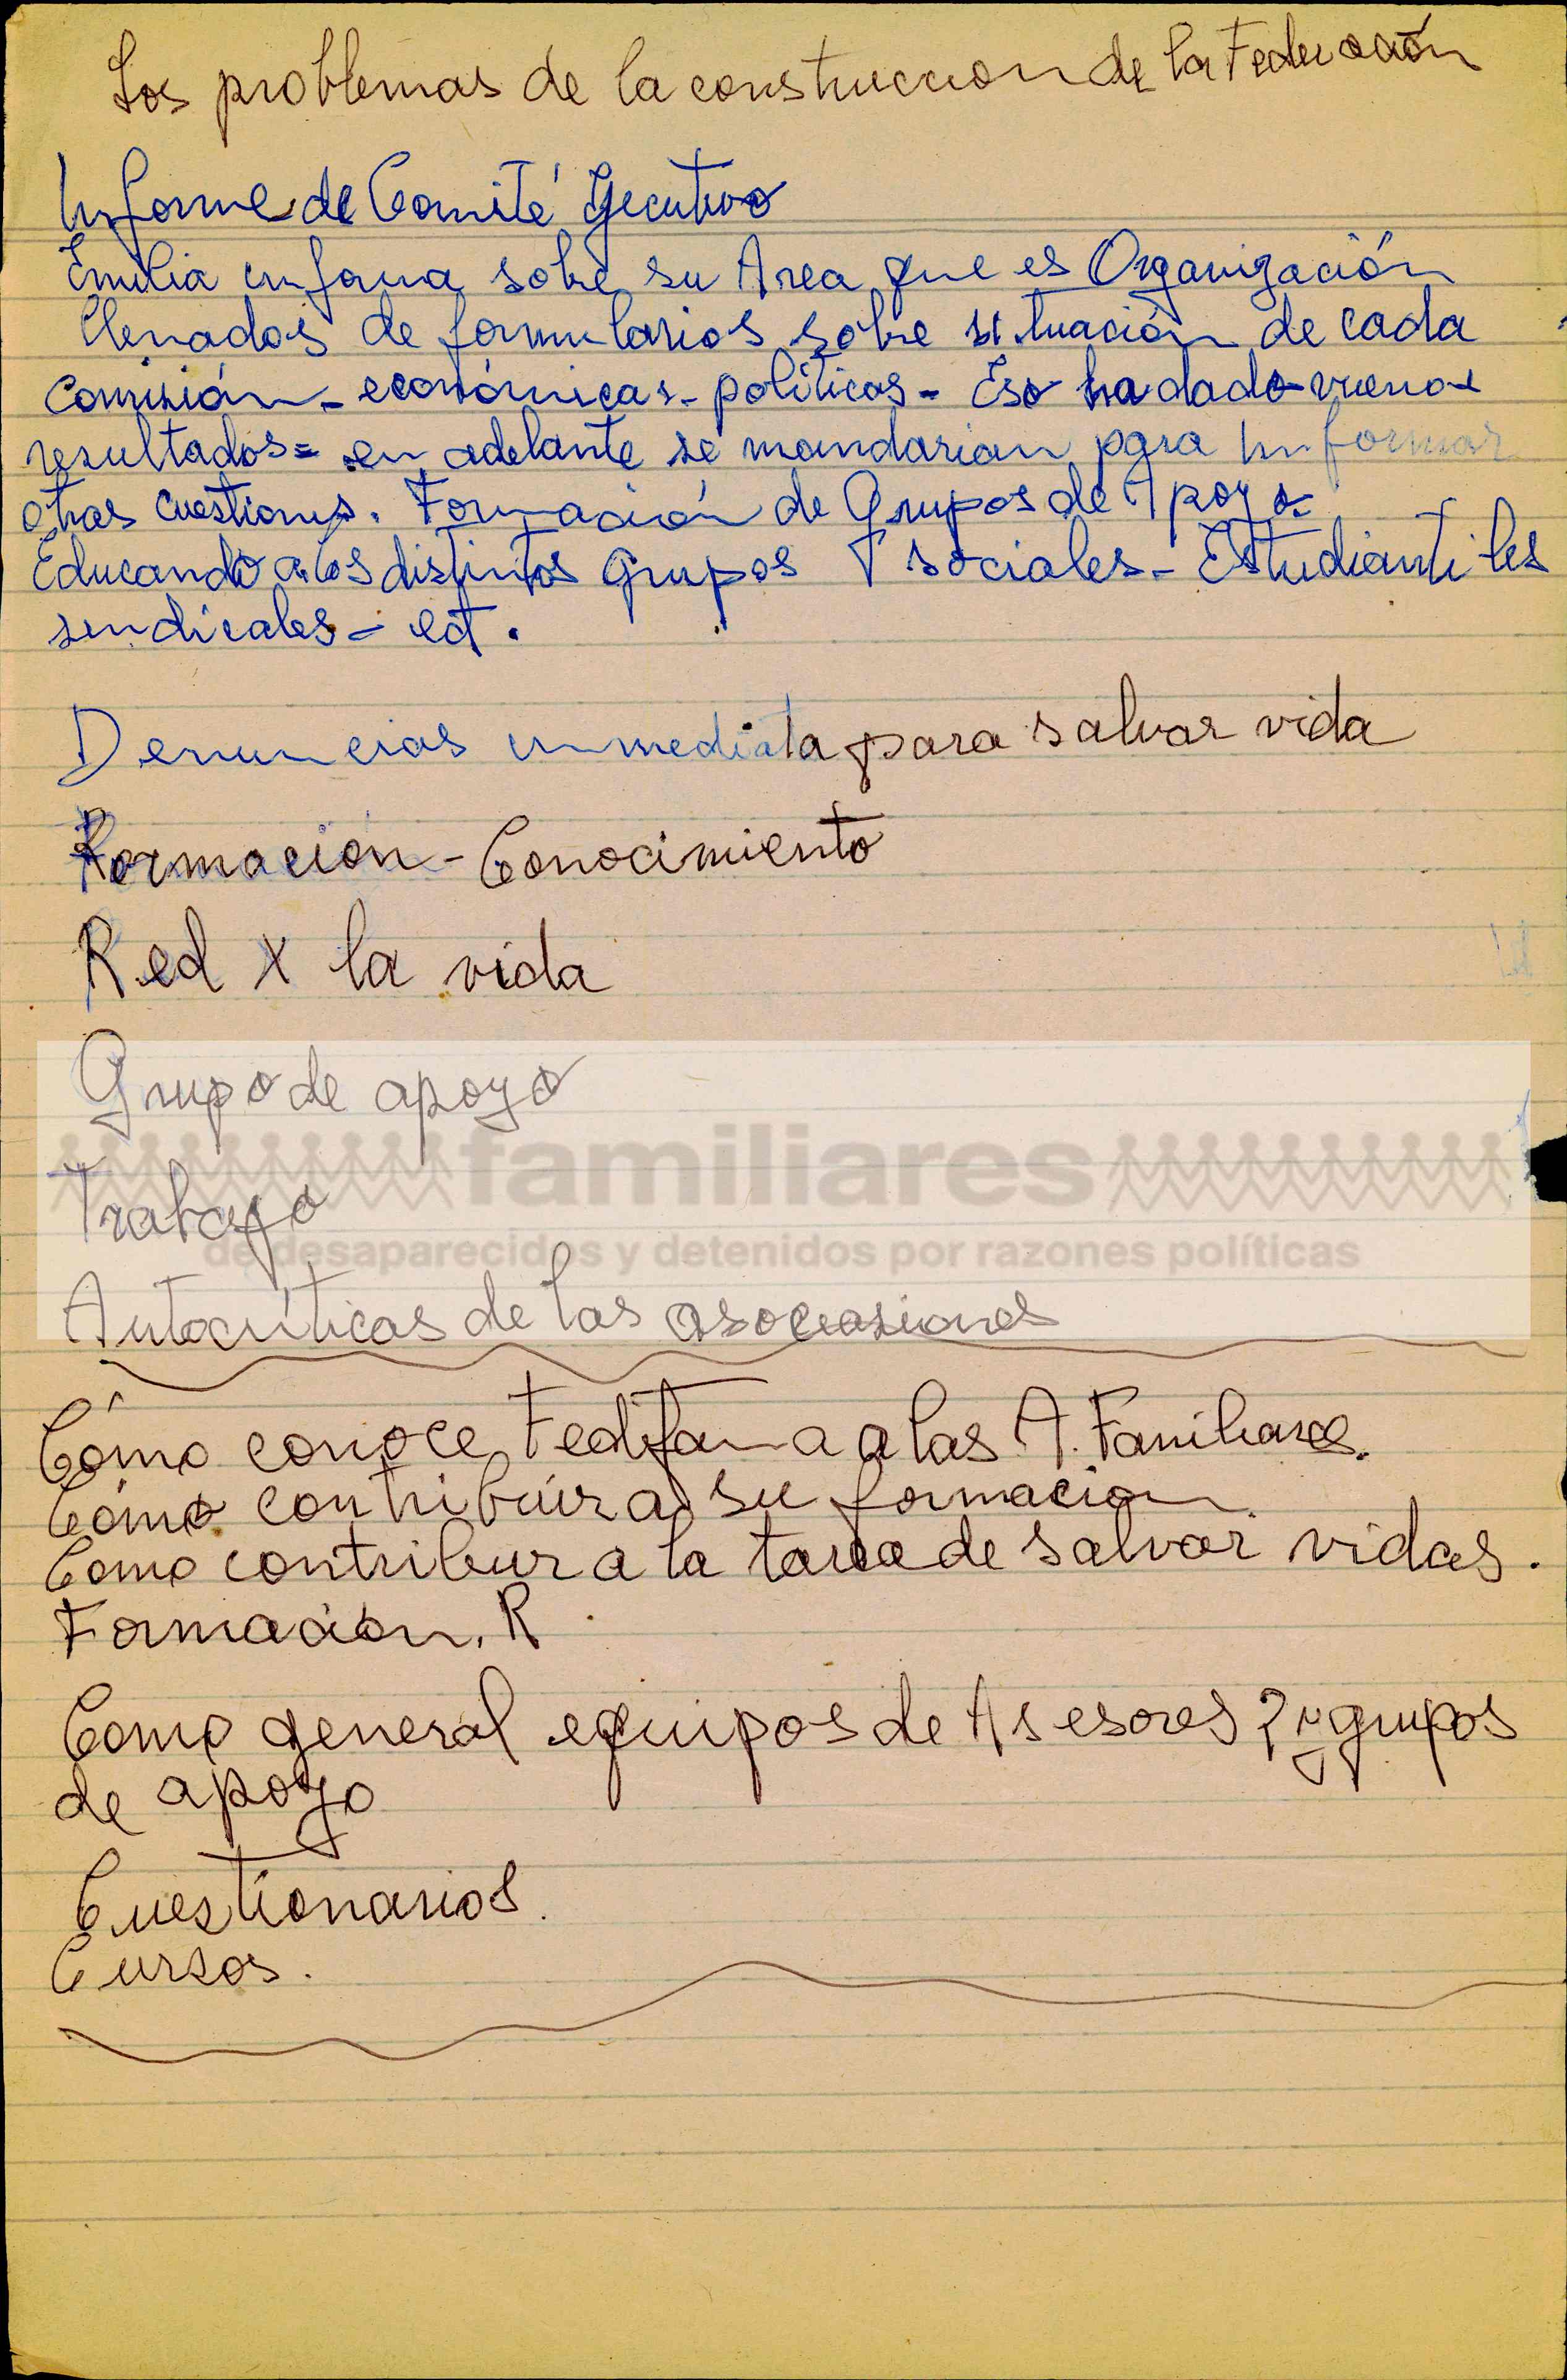 Los problemas de la construccion de la Federación
Informe de Comité Ejecutivo
Emilia informa sobre su Area que es Organización
llenados de formularios sobre situación de cada
Comisión - económicas - políticas - Eso ha dado vuenos
resultados = en adelante se mandarian para informar
otras cuestiones. Formación de Grupos de Apoyo =
Educando a los distintos grupos sociales - Estudiantiles
sindicales - ect.
Denuncias inmediata para salvar vida
Formación - Conocimiento
Red x la vida
Grupo de apoyo
familiares
Trabajo
de desaparecidos y detenidos por razones políticas
Autocríticas de las asociasiones
Cómo conoce Fedefam a a las A. Familiares.
Cómo contribuir a su formacion
Como contribuir a la tarea de salvar vidas.
Formacion. R
Como general equipos de Asesores ? y grupos
de apoyo
Cuestionarios.
Cursos.